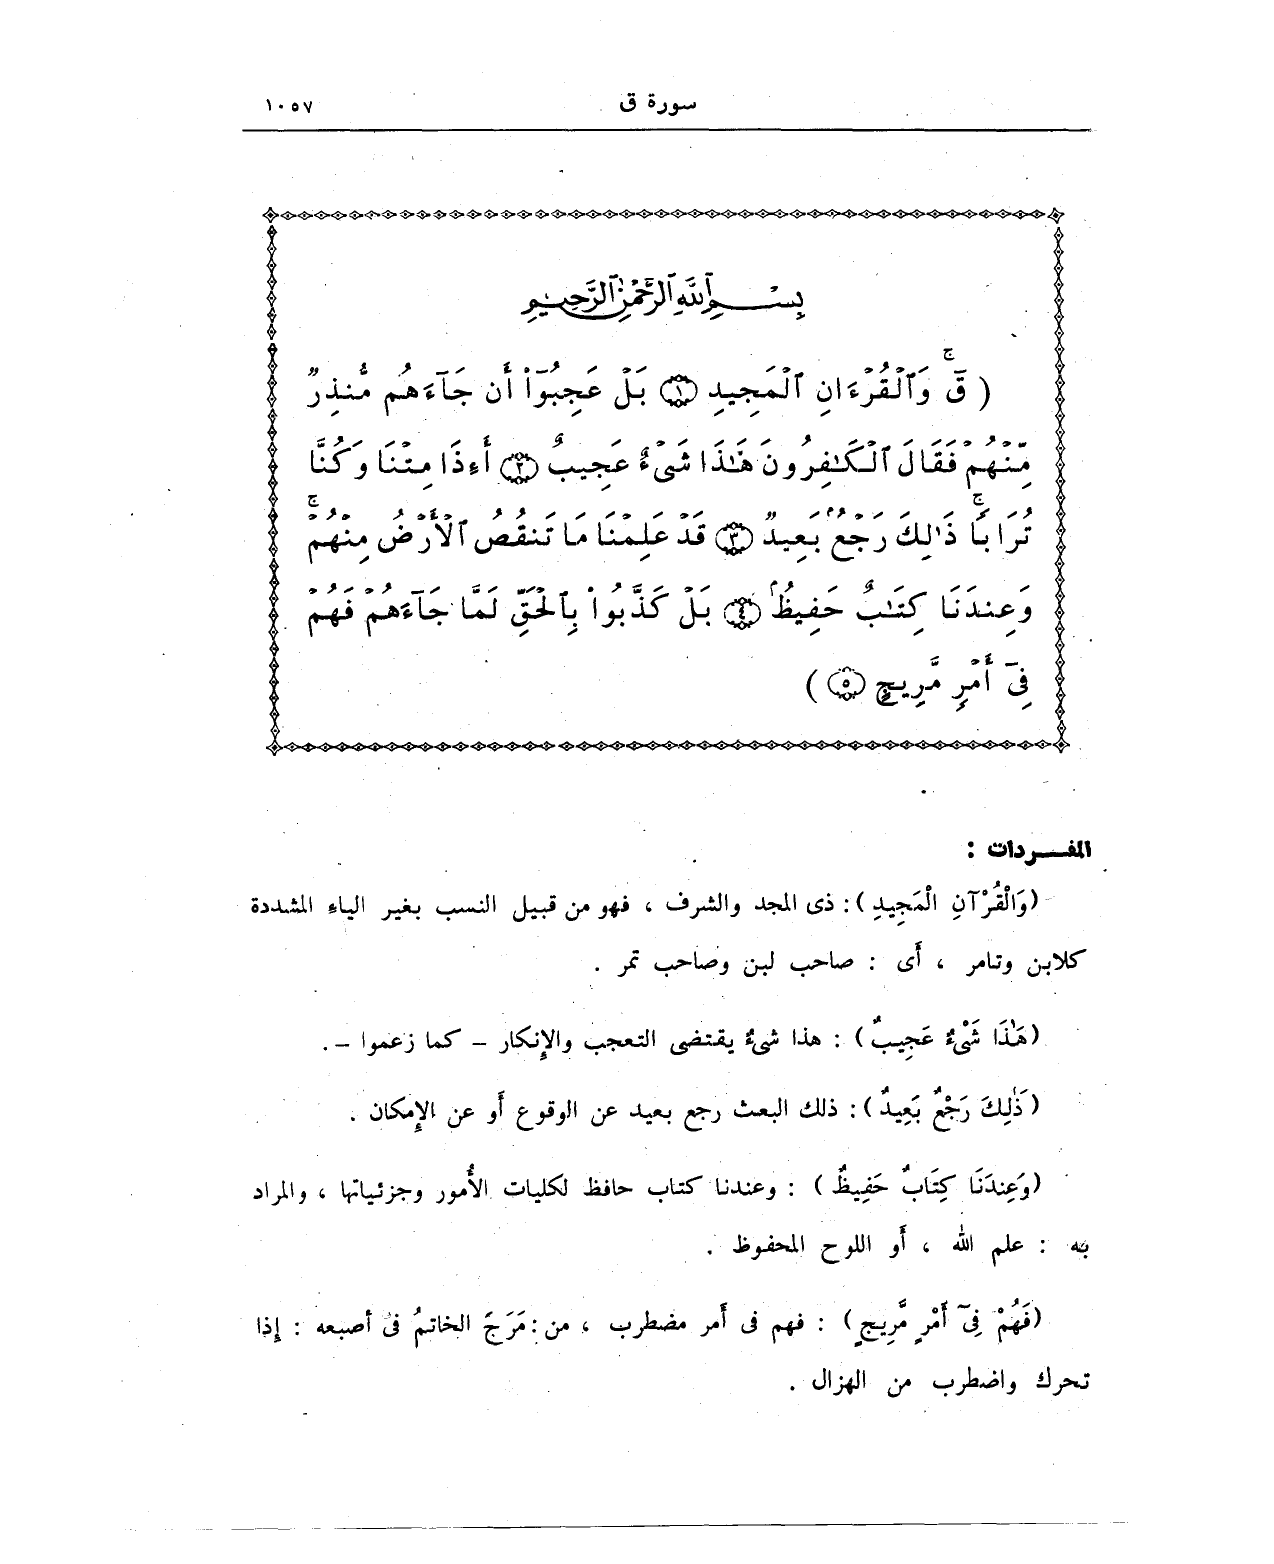 سورة ق
١٠٥٧
بِسْمِ ٱللَّهِ ٱلرَّحْمَٰنِ ٱلرَّحِيمِ
( قٓ ۚ وَٱلْقُرْءَانِ ٱلْمَجِيدِ ﴿١﴾ بَلْ عَجِبُوٓا۟ أَن جَآءَهُم مُّنذِرٌ
مِّنْهُمْ فَقَالَ ٱلْكَٰفِرُونَ هَٰذَا شَىْءٌ عَجِيبٌ ﴿٢﴾ أَءِذَا مِتْنَا وَكُنَّا
تُرَابًا ۖ ذَٰلِكَ رَجْعٌۢ بَعِيدٌ ﴿٣﴾ قَدْ عَلِمْنَا مَا تَنقُصُ ٱلْأَرْضُ مِنْهُمْ ۖ
وَعِندَنَا كِتَٰبٌ حَفِيظٌۢ ﴿٤﴾ بَلْ كَذَّبُوا۟ بِٱلْحَقِّ لَمَّا جَآءَهُمْ فَهُمْ
فِىٓ أَمْرٍ مَّرِيجٍ ﴿٥﴾ )
المفـــردات :
(وَالْقُرْآنِ الْمَجِيدِ) : ذى المجد والشرف ، فهو من قبيل النسب بغير الياء المشددة
كلابن وتامر ، أى : صاحب لبن وصاحب تمر .
(هَٰذَا شَىْءٌ عَجِيبٌ) : هذا شىءٌ يقتضى التعجب والإنكار – كما زعموا – .
(ذَٰلِكَ رَجْعٌ بَعِيدٌ) : ذلك البعث رجع بعيد عن الوقوع أو عن الإمكان .
(وَعِندَنَا كِتَابٌ حَفِيظٌ) : وعندنا كتاب حافظ لكليات الأُمور وجزئياتها ، والمراد
به : علم الله ، أو اللوح المحفوظ .
(فَهُمْ فِىٓ أَمْرٍ مَّرِيجٍ) : فهم فى أَمر مضطرب ، من : مَرَجَ الخاتمُ فى أصبعه : إذا
تحرك واضطرب من الهزال .